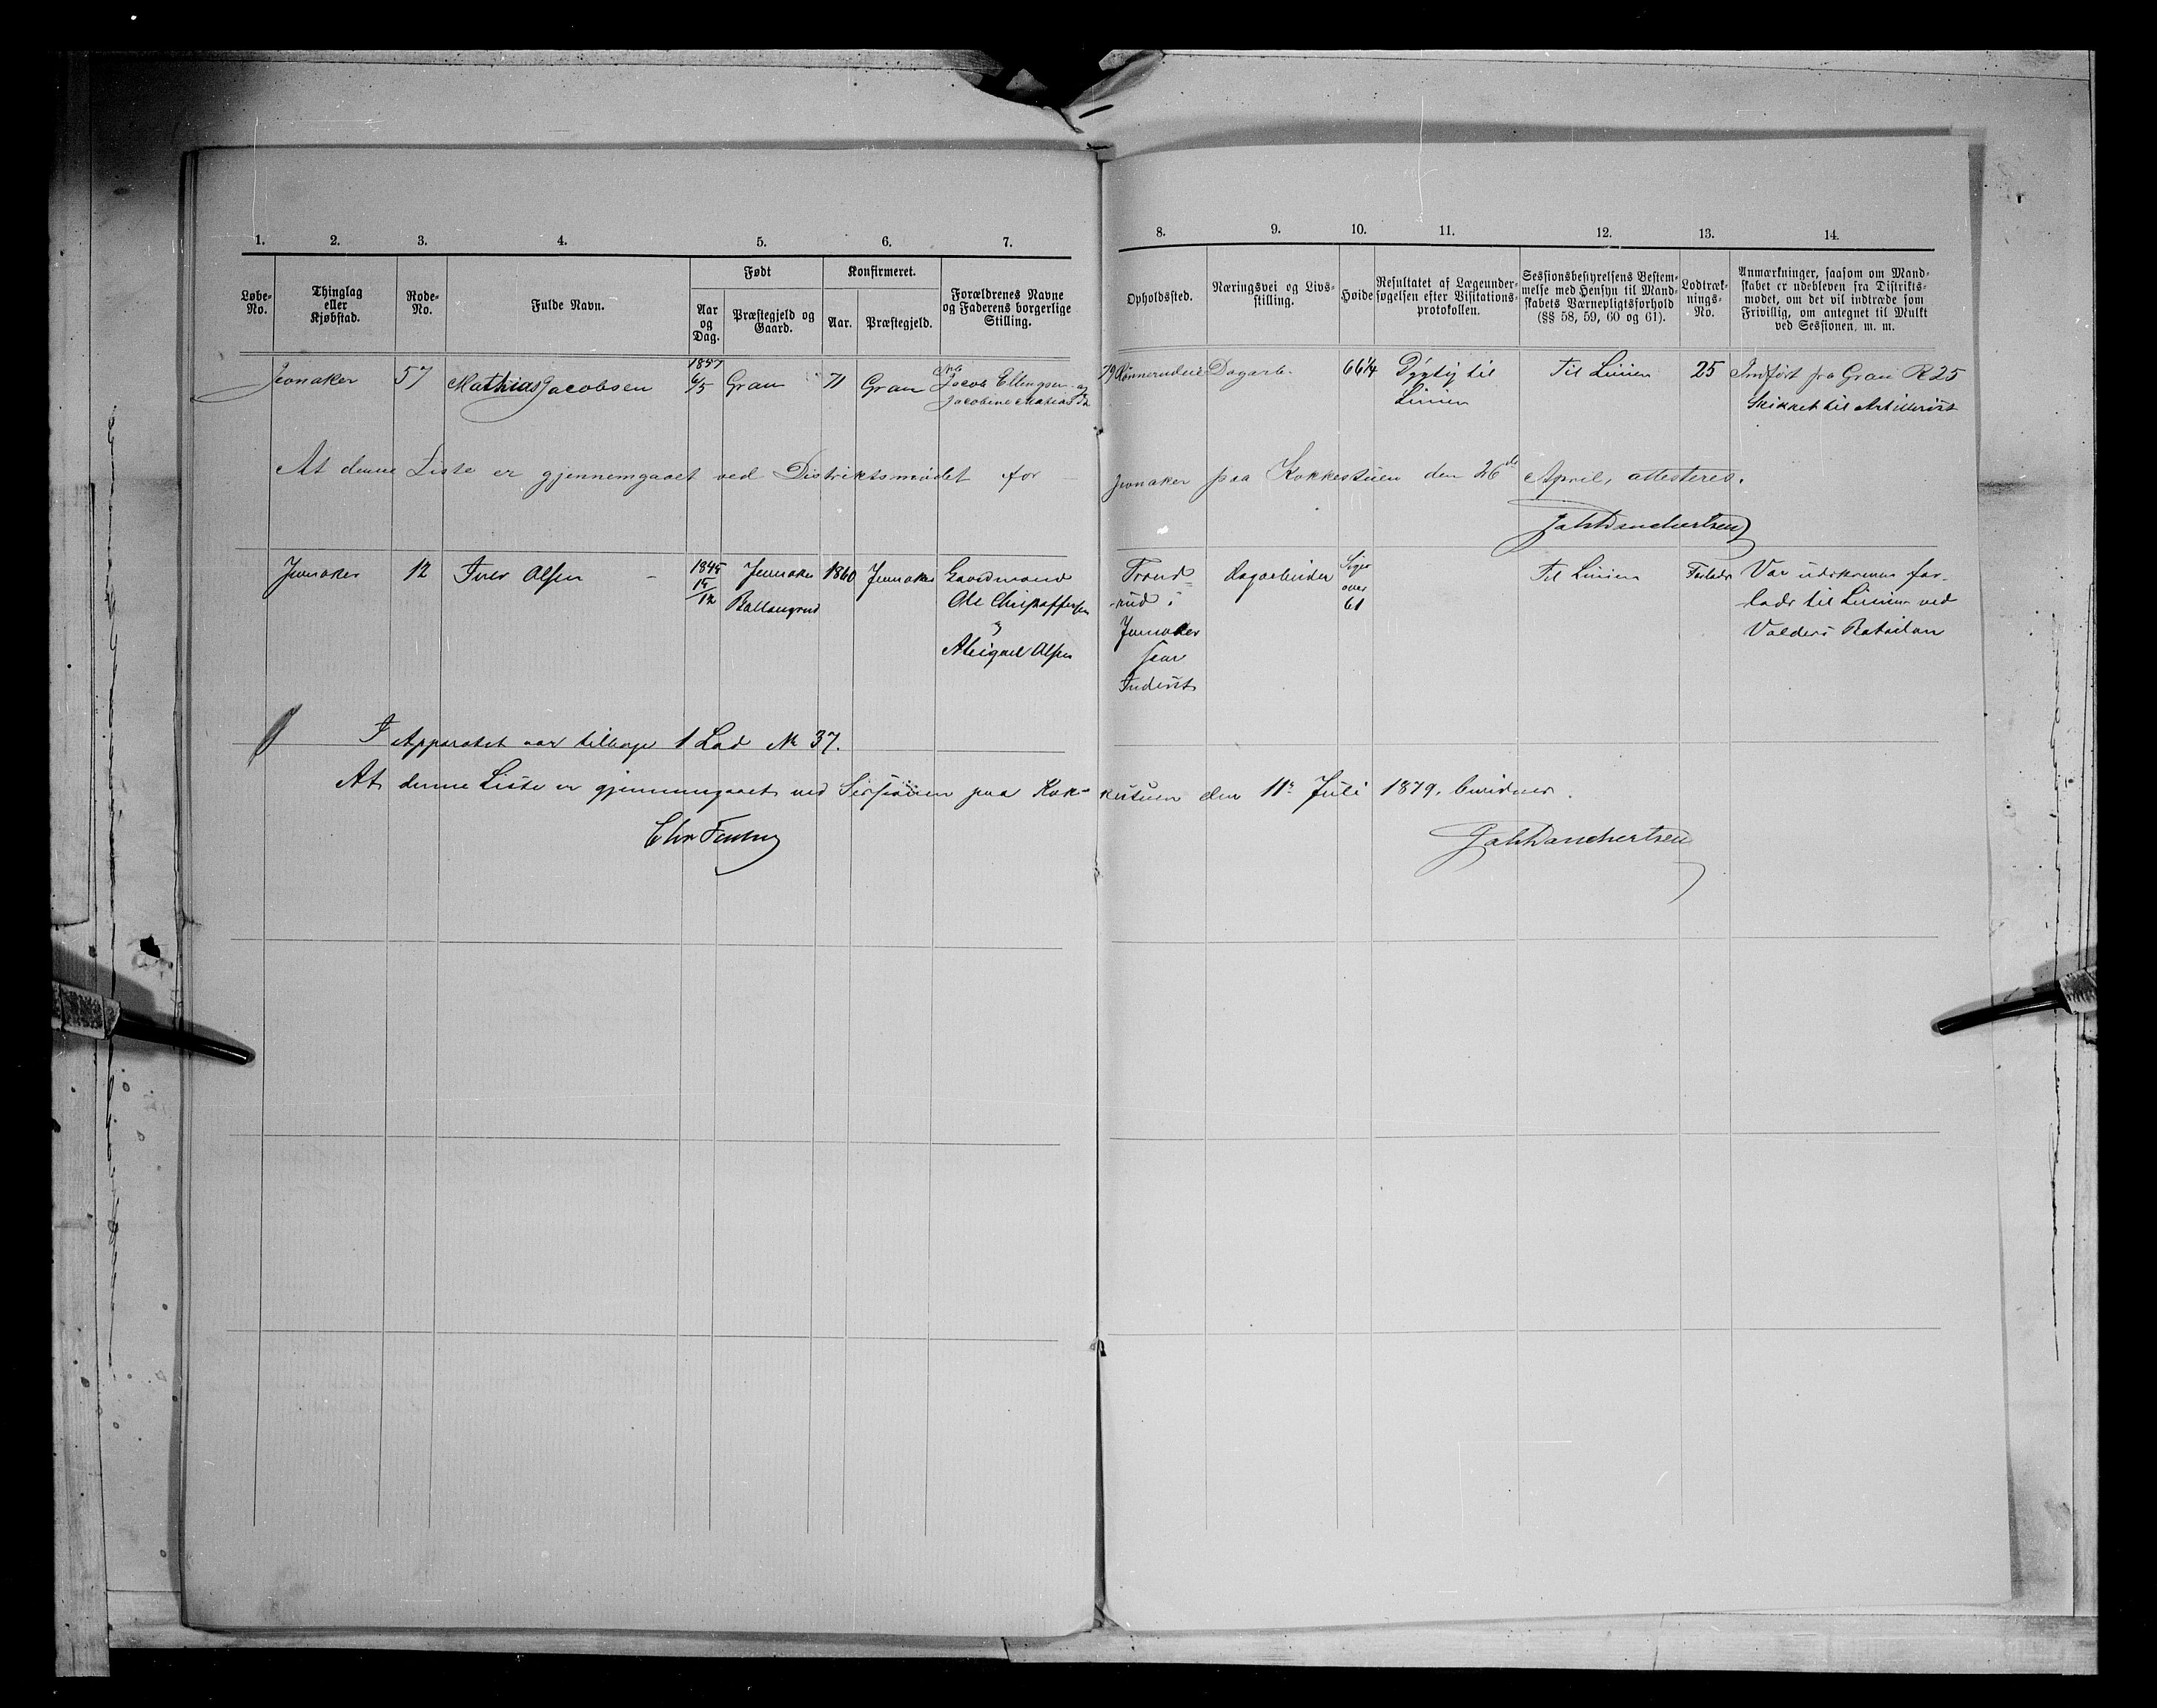 1. 2. 3. 4. 5. 6. 7. 8. 9. 10. 11. 12. 13. 14.
Løbe-No.
Thinglag eller Kjøbstad.
Rode-No.
Fulde Navn.
Født
Aar og Dag.
Præstegjeld og Gaard.
Konfirmeret.
Aar.
Præstegjeld.
Forældrenes Navne og Faderens borgerlige Stilling.
Opholdssted.
Næringsvei og Livs-stilling.
Høide
Resultatet af Lægeunder-søgelsen efter Visitations-protokollen.
Sessionsbestyrelsens Bestem-melse med Hensyn til Mand-skabets Værnepligtsforhold (§§ 58, 59, 60 og 61).
Lodtræk-nings-No.
Anmærkninger, saasom om Mand-skabet er udebleven fra Distrikts-modet, om det vil indtræde som Frivillig, om antegnet til Mulkt ved Sessionen, m. m.
Jevnaker 57 Mathias Jacobsen 1857 6/5 Gran 71 Gran Jacob Ellingsen og Dagarb. 66 1/4 Dygtig til Til Linien 25 Indført fra Gran R 25
Jacobine Linien Skikket til Artillerist
At denne Liste er gjennemgaaet ved Distriktsmødet for Jevnaker paa Kokkestuen den 26de April, attesteres.
Jevnaker 12 Iver Olsen 1845 15/12 Jevnaker 1860 Jevnaker Gaardmand Trond- Dagarbeider Siger Til Linien Forlods Var udskreven for-
Ballangrud Ole Christoffersen rud i over lods til Linien ved
og Jevnaker 61 Valders Bataillon
Abigael Olsen
I Apparatet var tilbage 1 Lod No 37.
At denne Liste er gjennemgaaet ved Sessionen paa Kok-kestuen den 11te Juli 1879, bevidnes.